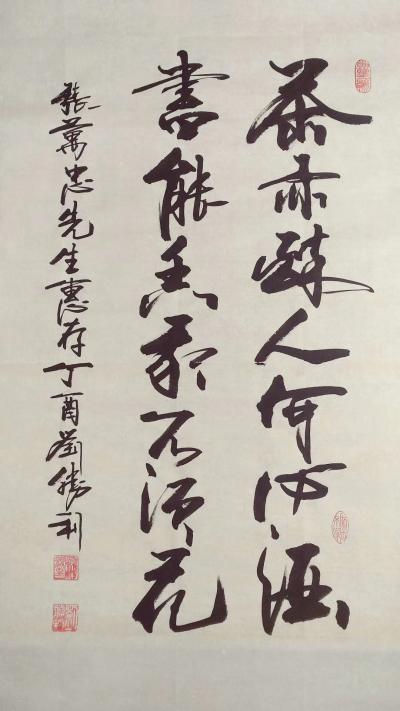 茶亦醉人何必酒
書能香我不須花
張萬忠先生惠存丁酉劉勝利